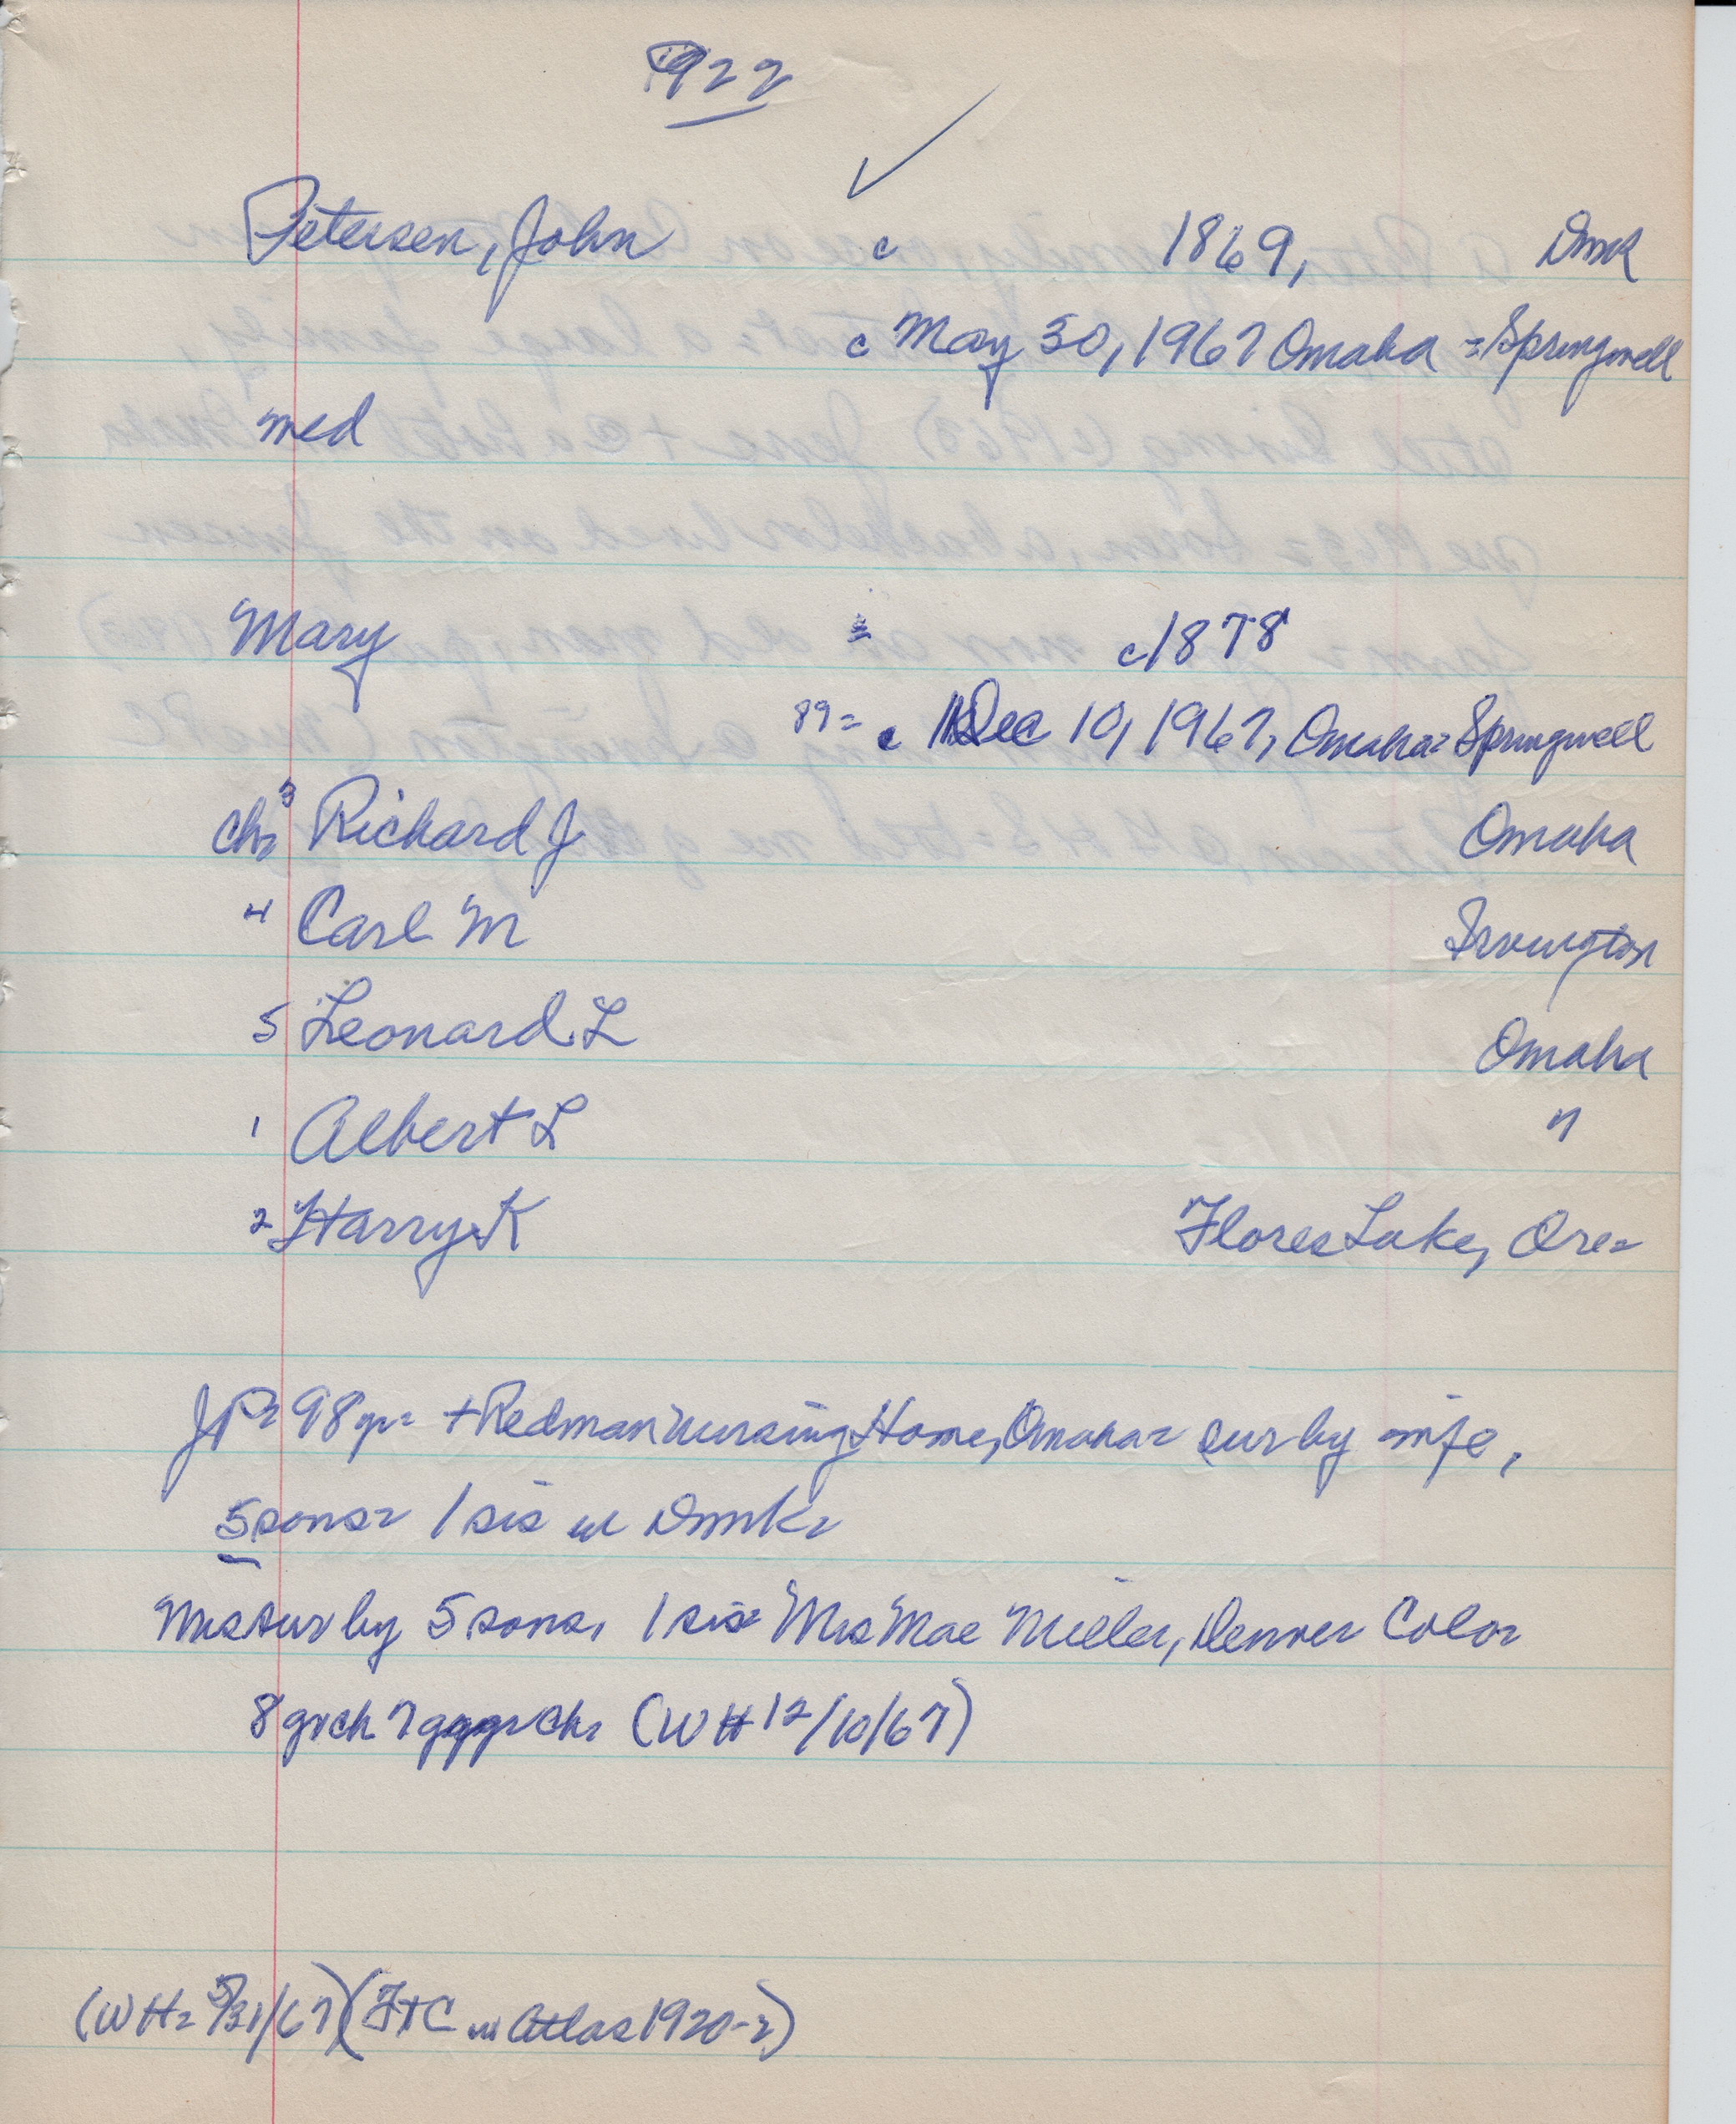 1922
✓
Petersen, John c 1869, Dmk
c May 30, 1967 Omaha = Springwell
med
Mary = c 1878
89 = c Dec 10, 1967, Omaha = Springwell
ch= 3 Richard J Omaha
4 Carl M Irvington
5 Leonard L Omaha
1 Albert L "
2 Harry K Flores Lake, Ore=
JP= 98 yr= + Redman Nursing Home, Omaha= sur by wife,
5 sons= 1 sis in Dmk=
Mrs sur by 5 sons, 1 sis= Mrs Mae Miller, Denver Colo=
8 grch 7 ggrch, (WH 12/10/67)
(WH= 5/31/67) (FTC in Atlas 1920-2)